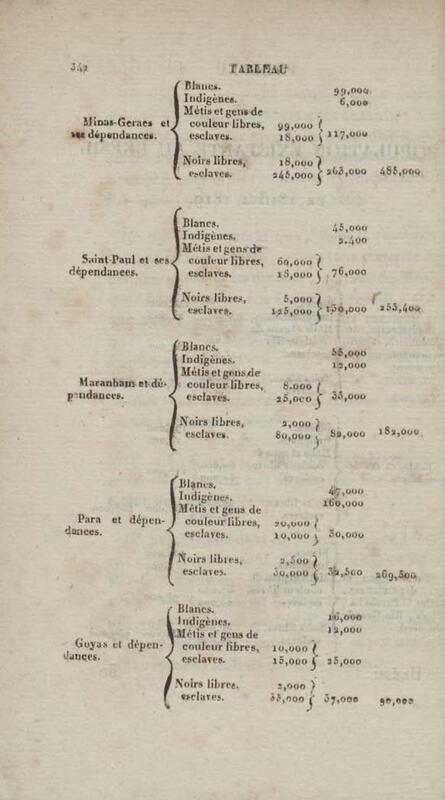 342 TABLEAU
Blancs. 99,000
Indigènes. 6,000
Métis et gens de
Minas-Geraes et couleur libres, 99,000
ses dépendances. esclaves. 18,000 117,000
Noirs libres, 18,000
esclaves. 245,000 263,000 485,000
Blancs. 45,000
Indigènes. 2.400
Métis et gens de
Saint-Paul et ses couleur libres, 60,000
dépendances. esclaves. 16,000 76,000
Noirs libres, 5,000
esclaves. 125,000 130,000 253,400
Blancs. 55,000
Indigènes. 12,000
Métis et gens de
Maranham et dé- couleur libres, 8.000
pendances. esclaves. 25,000 33,000
Noirs libres, 2,000
esclaves. 80,000 82,000 182,000
Blancs. 47,000
Indigènes. 160,000
Métis et gens de
Para et dépen- couleur libres, 20,000
dances. esclaves. 10,000 30,000
Noirs libres, 2,500
esclaves. 30,000 32,500 269,500
Blancs. 16,000
Indigènes. 12,000
Métis et gens de
Goyas et dépen- couleur libres, 10,000
dances. esclaves. 15,000 25,000
Noirs libres, 2,000
esclaves. 35,000 37,000 90,000